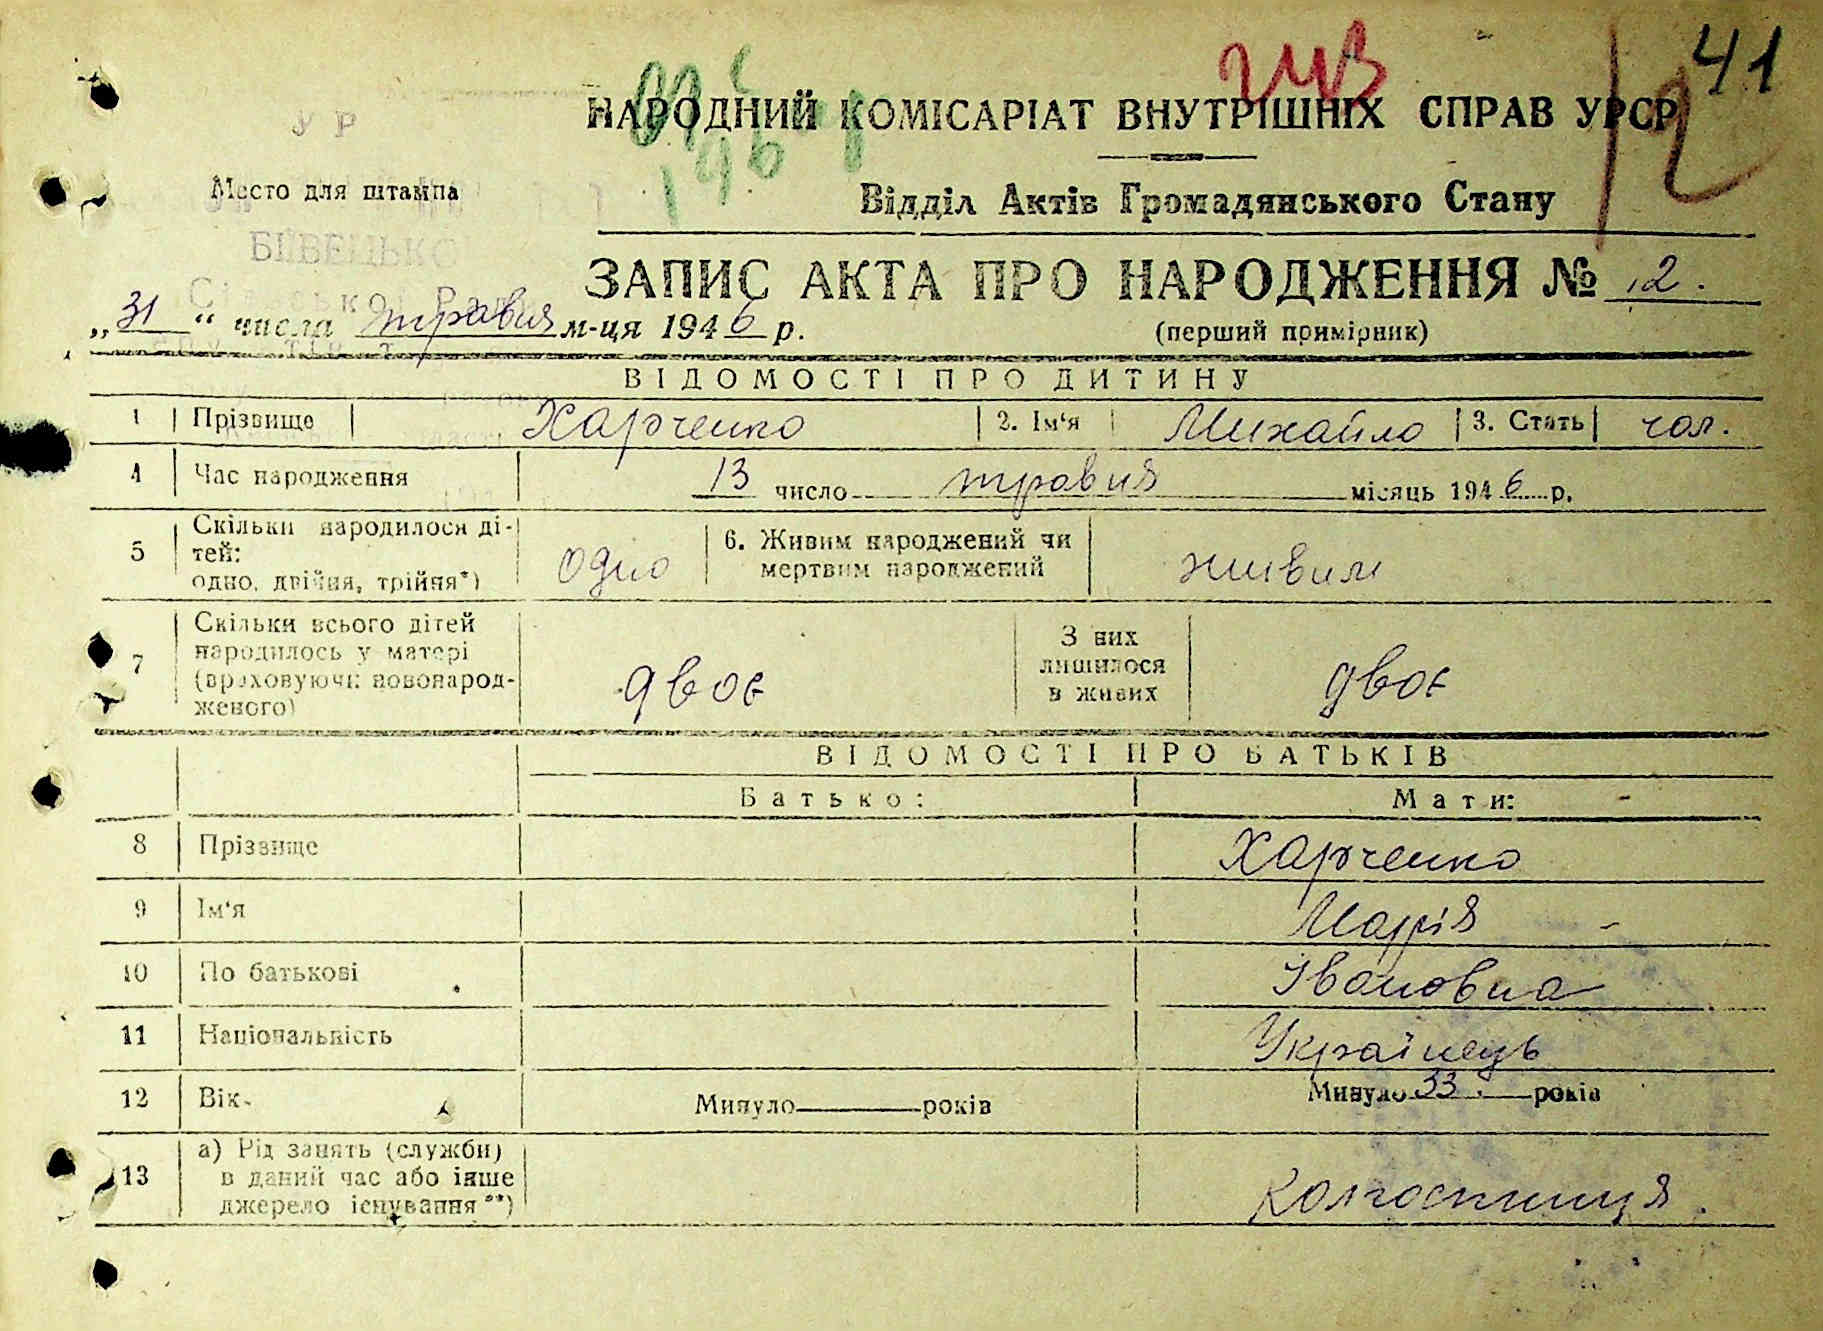 41
12
НАРОДНИЙ КОМІСАРІАТ ВНУТРІШНІХ СПРАВ УРСР
УР
Место для штампа
Відділ Актів Громадянського Стану
ЗАПИС АКТА ПРО НАРОДЖЕННЯ № 12.
„31“ числа травня м-ця 1946 р.
(перший примірник)
ВІДОМОСТІ ПРО ДИТИНУ
1 Прізвище Харченко 2. Ім'я Михайло 3. Стать чол.
4 Час народження 13 число травня місяць 1946 р.
5 Скільки народилося ді-
тей:
одно, двійня, трійня*) одно 6. Живим народжений чи
мертвим народжений живим
7 Скільки всього дітей
народилось у матері
(враховуючи новонарод-
женого) двоє З них
лишилося
в живих двоє
ВІДОМОСТІ ПРО БАТЬКІВ
Батько: Мати:
8 Прізвище Харченко
9 Ім'я Марія
10 По батькові Івановна
11 Національність Українець
12 Вік Минуло років Минуло 33 років
13 а) Рід занять (служби)
в даний час або інше
джерело існування**) Колгоспниця.